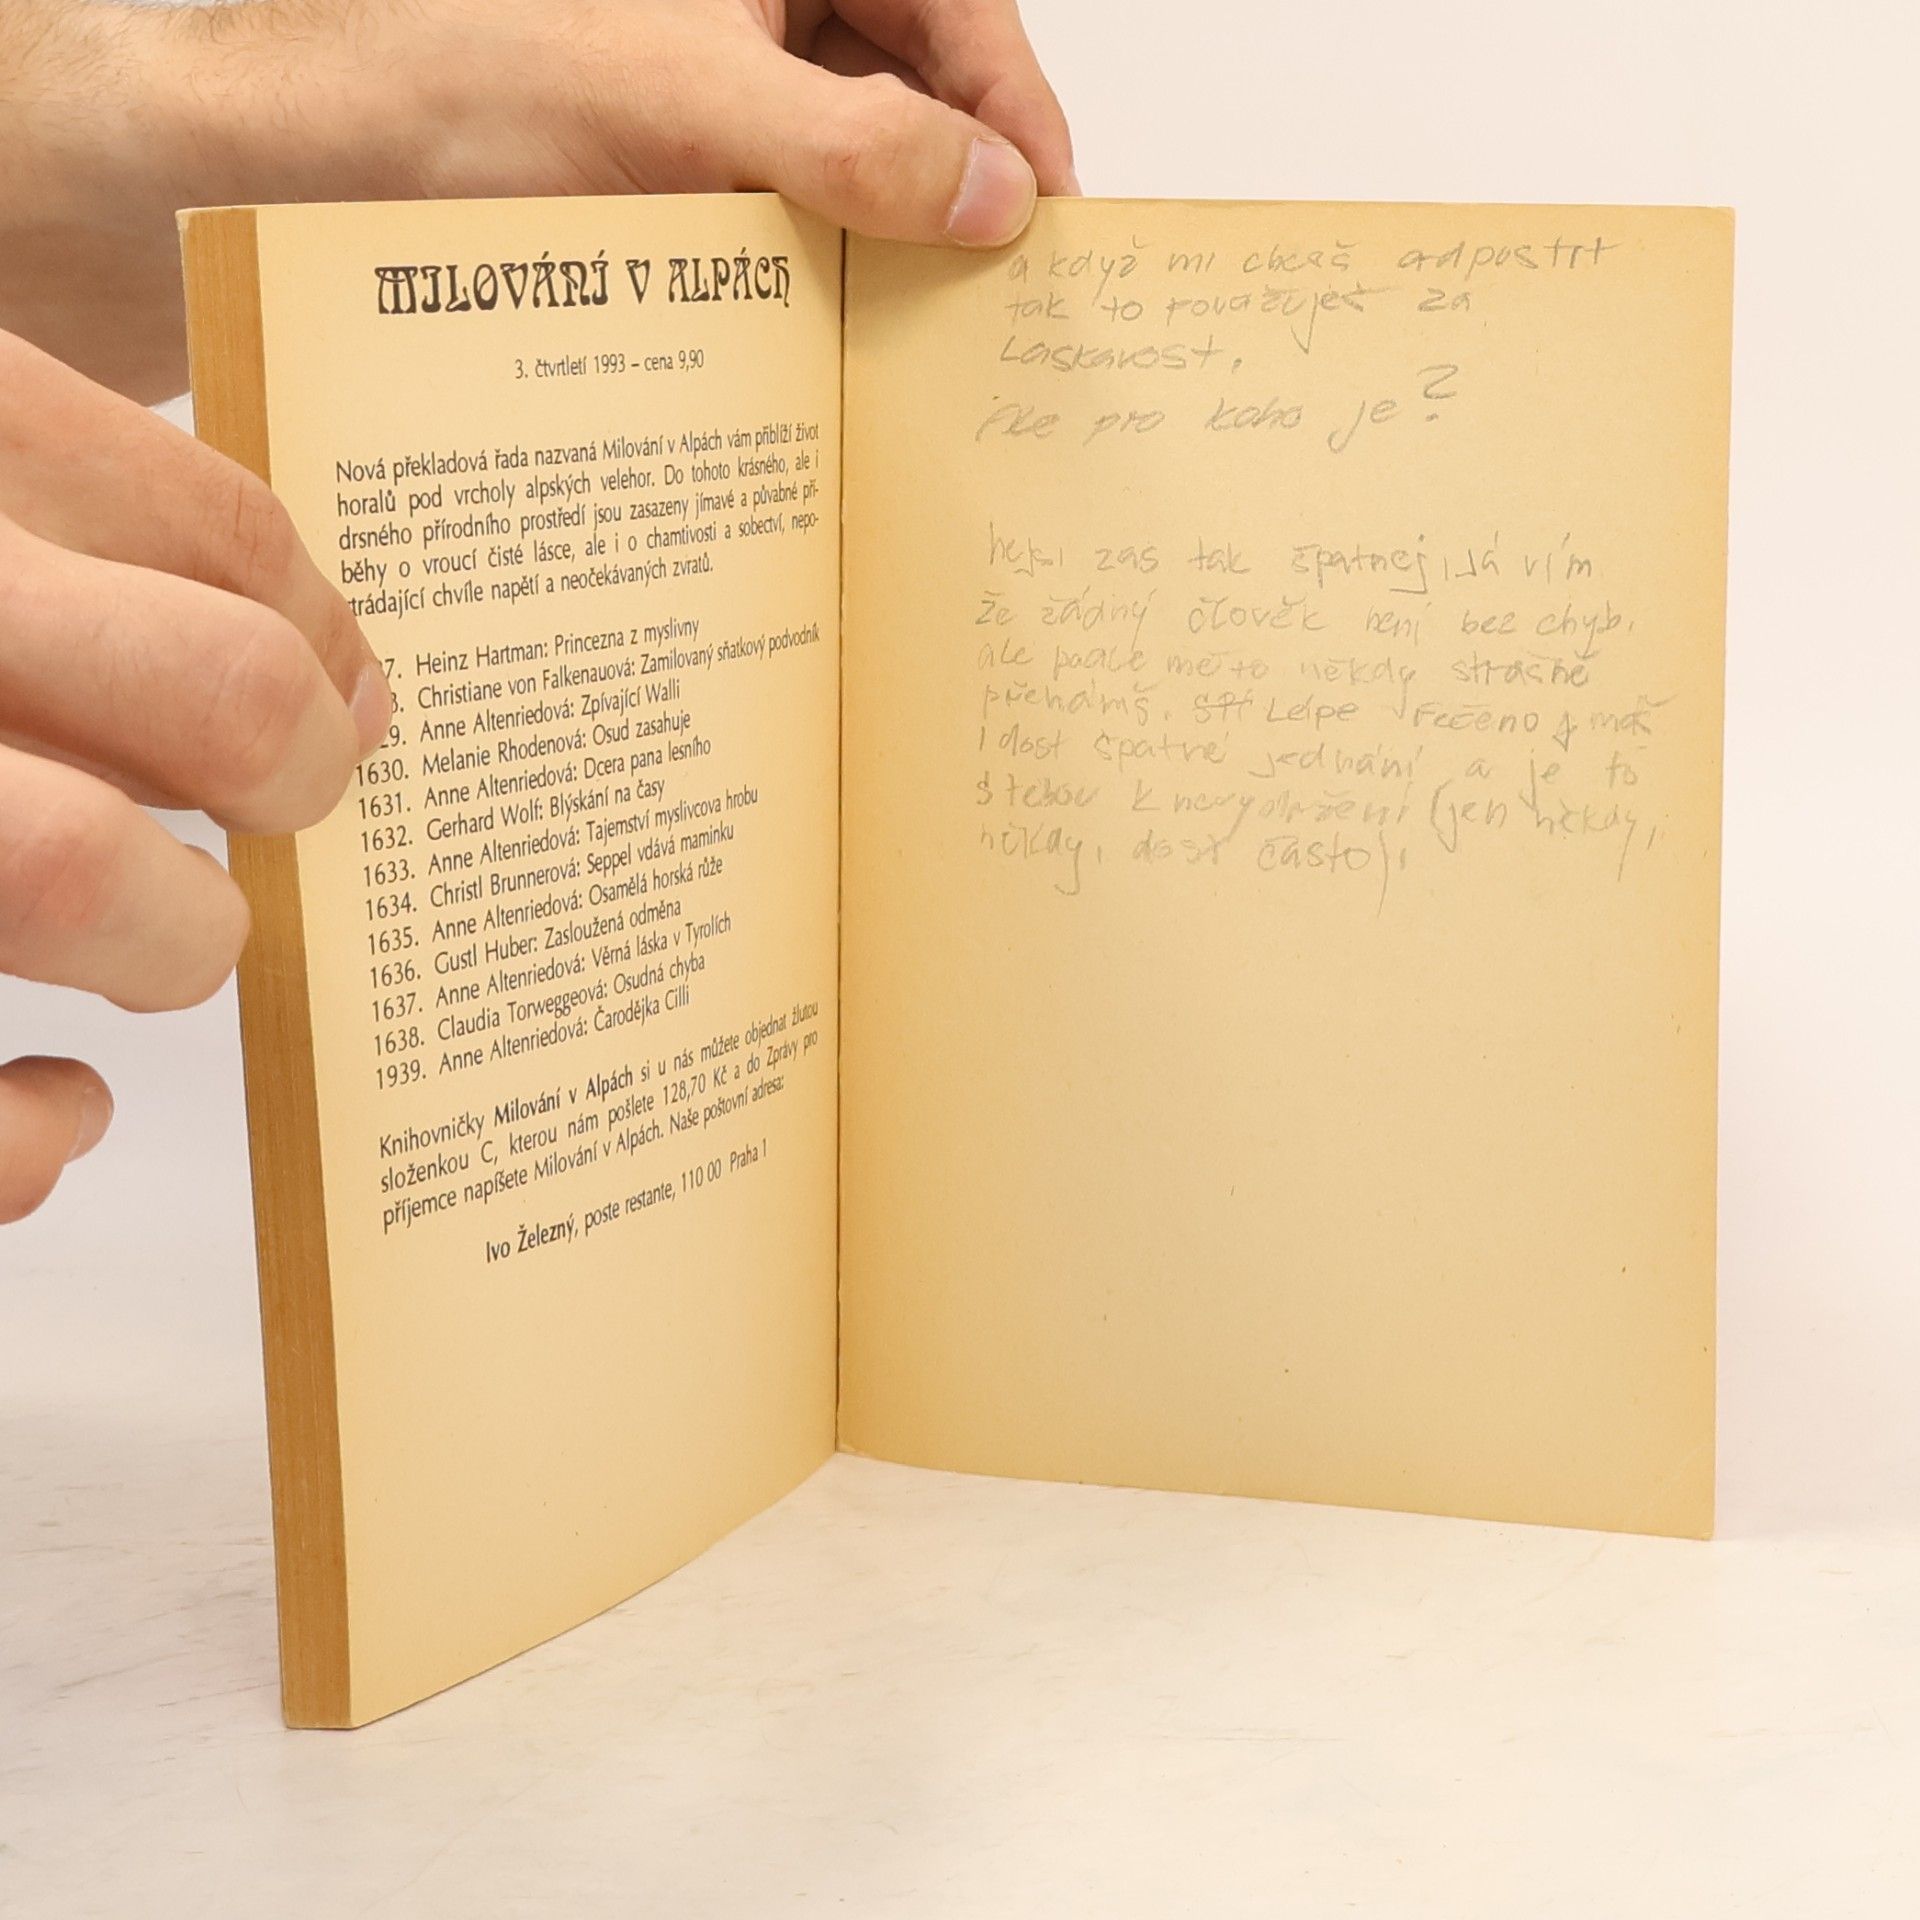 MILOVÁNÍ V ALPÁCH
3. čtvrtletí 1993 – cena 9,90
Nová překladová řada nazvaná Milování v Alpách vám přiblíží život
horalů pod vrcholy alpských velehor. Do tohoto krásného, ale i
drsného přírodního prostředí jsou zasazeny jímavé a půvabné pří-
běhy o vroucí čisté lásce, ale i o chamtivosti a sobectví, nepo-
strádající chvíle napětí a neočekávaných zvratů.
7. Heinz Hartman: Princezna z myslivny
8. Christiane von Falkenauová: Zamilovaný sňatkový podvodník
29. Anne Altenriedová: Zpívající Walli
1630. Melanie Rhodenová: Osud zasahuje
1631. Anne Altenriedová: Dcera pana lesního
1632. Gerhard Wolf: Blýskání na časy
1633. Anne Altenriedová: Tajemství myslivcova hrobu
1634. Christl Brunnerová: Seppel vdává maminku
1635. Anne Altenriedová: Osamělá horská růže
1636. Gustl Huber: Zasloužená odměna
1637. Anne Altenriedová: Věrná láska v Tyrolích
1638. Claudia Torweggeová: Osudná chyba
1939. Anne Altenriedová: Čarodějka Cilli
Knihovničky Milování v Alpách si u nás můžete objednat žlutou
složenkou C, kterou nám pošlete 128,70 Kč a do Zprávy pro
příjemce napíšete Milování v Alpách. Naše poštovní adresa:
Ivo Železný, poste restante, 110 00 Praha 1
a když mi chceš odpustit
tak to považuješ za
Laskavost.
Ale pro koho je?
nejsi zas tak špatnej, Já vím
že žádný člověk není bez chyb,
ale podle mě to někdy strašně
přeháníš. Lépe řečeno máš
i dost špatné jednání a je to
s tebou k nevydržení (jen někdy,
někdy, dost často).